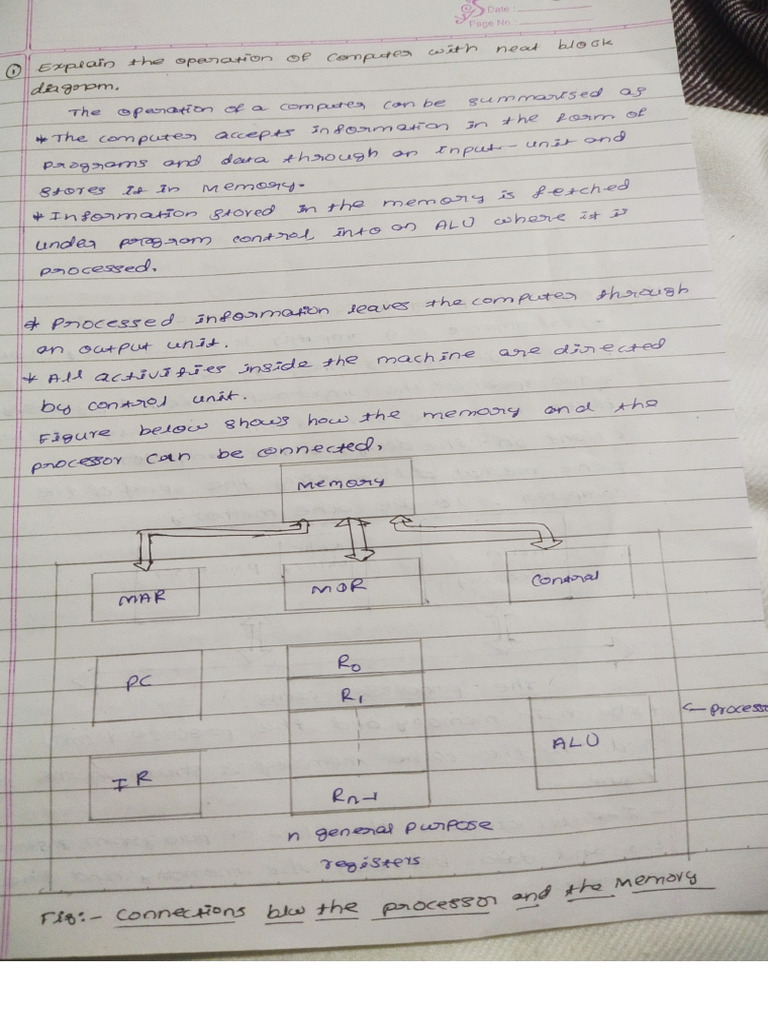 Date :
Page No. :
① Explain the operation of computer with neat block
diagram.
The operation of a computer can be summarised as
* The computer accepts information in the form of
programs and data through an input-unit and
stores it in memory.
* Information stored in the memory is fetched
under program control into an ALU where it is
processed.
* Processed information leaves the computer through
an output unit.
* All activities inside the machine are directed
by control unit.
Figure below shows how the memory and the
processor can be connected,
Memory
MAR
MDR
Control
PC
R0
R1
ALU
← Process
IR
Rn-1
n general purpose
registers
Fig:- Connections b/w the processor and the Memory